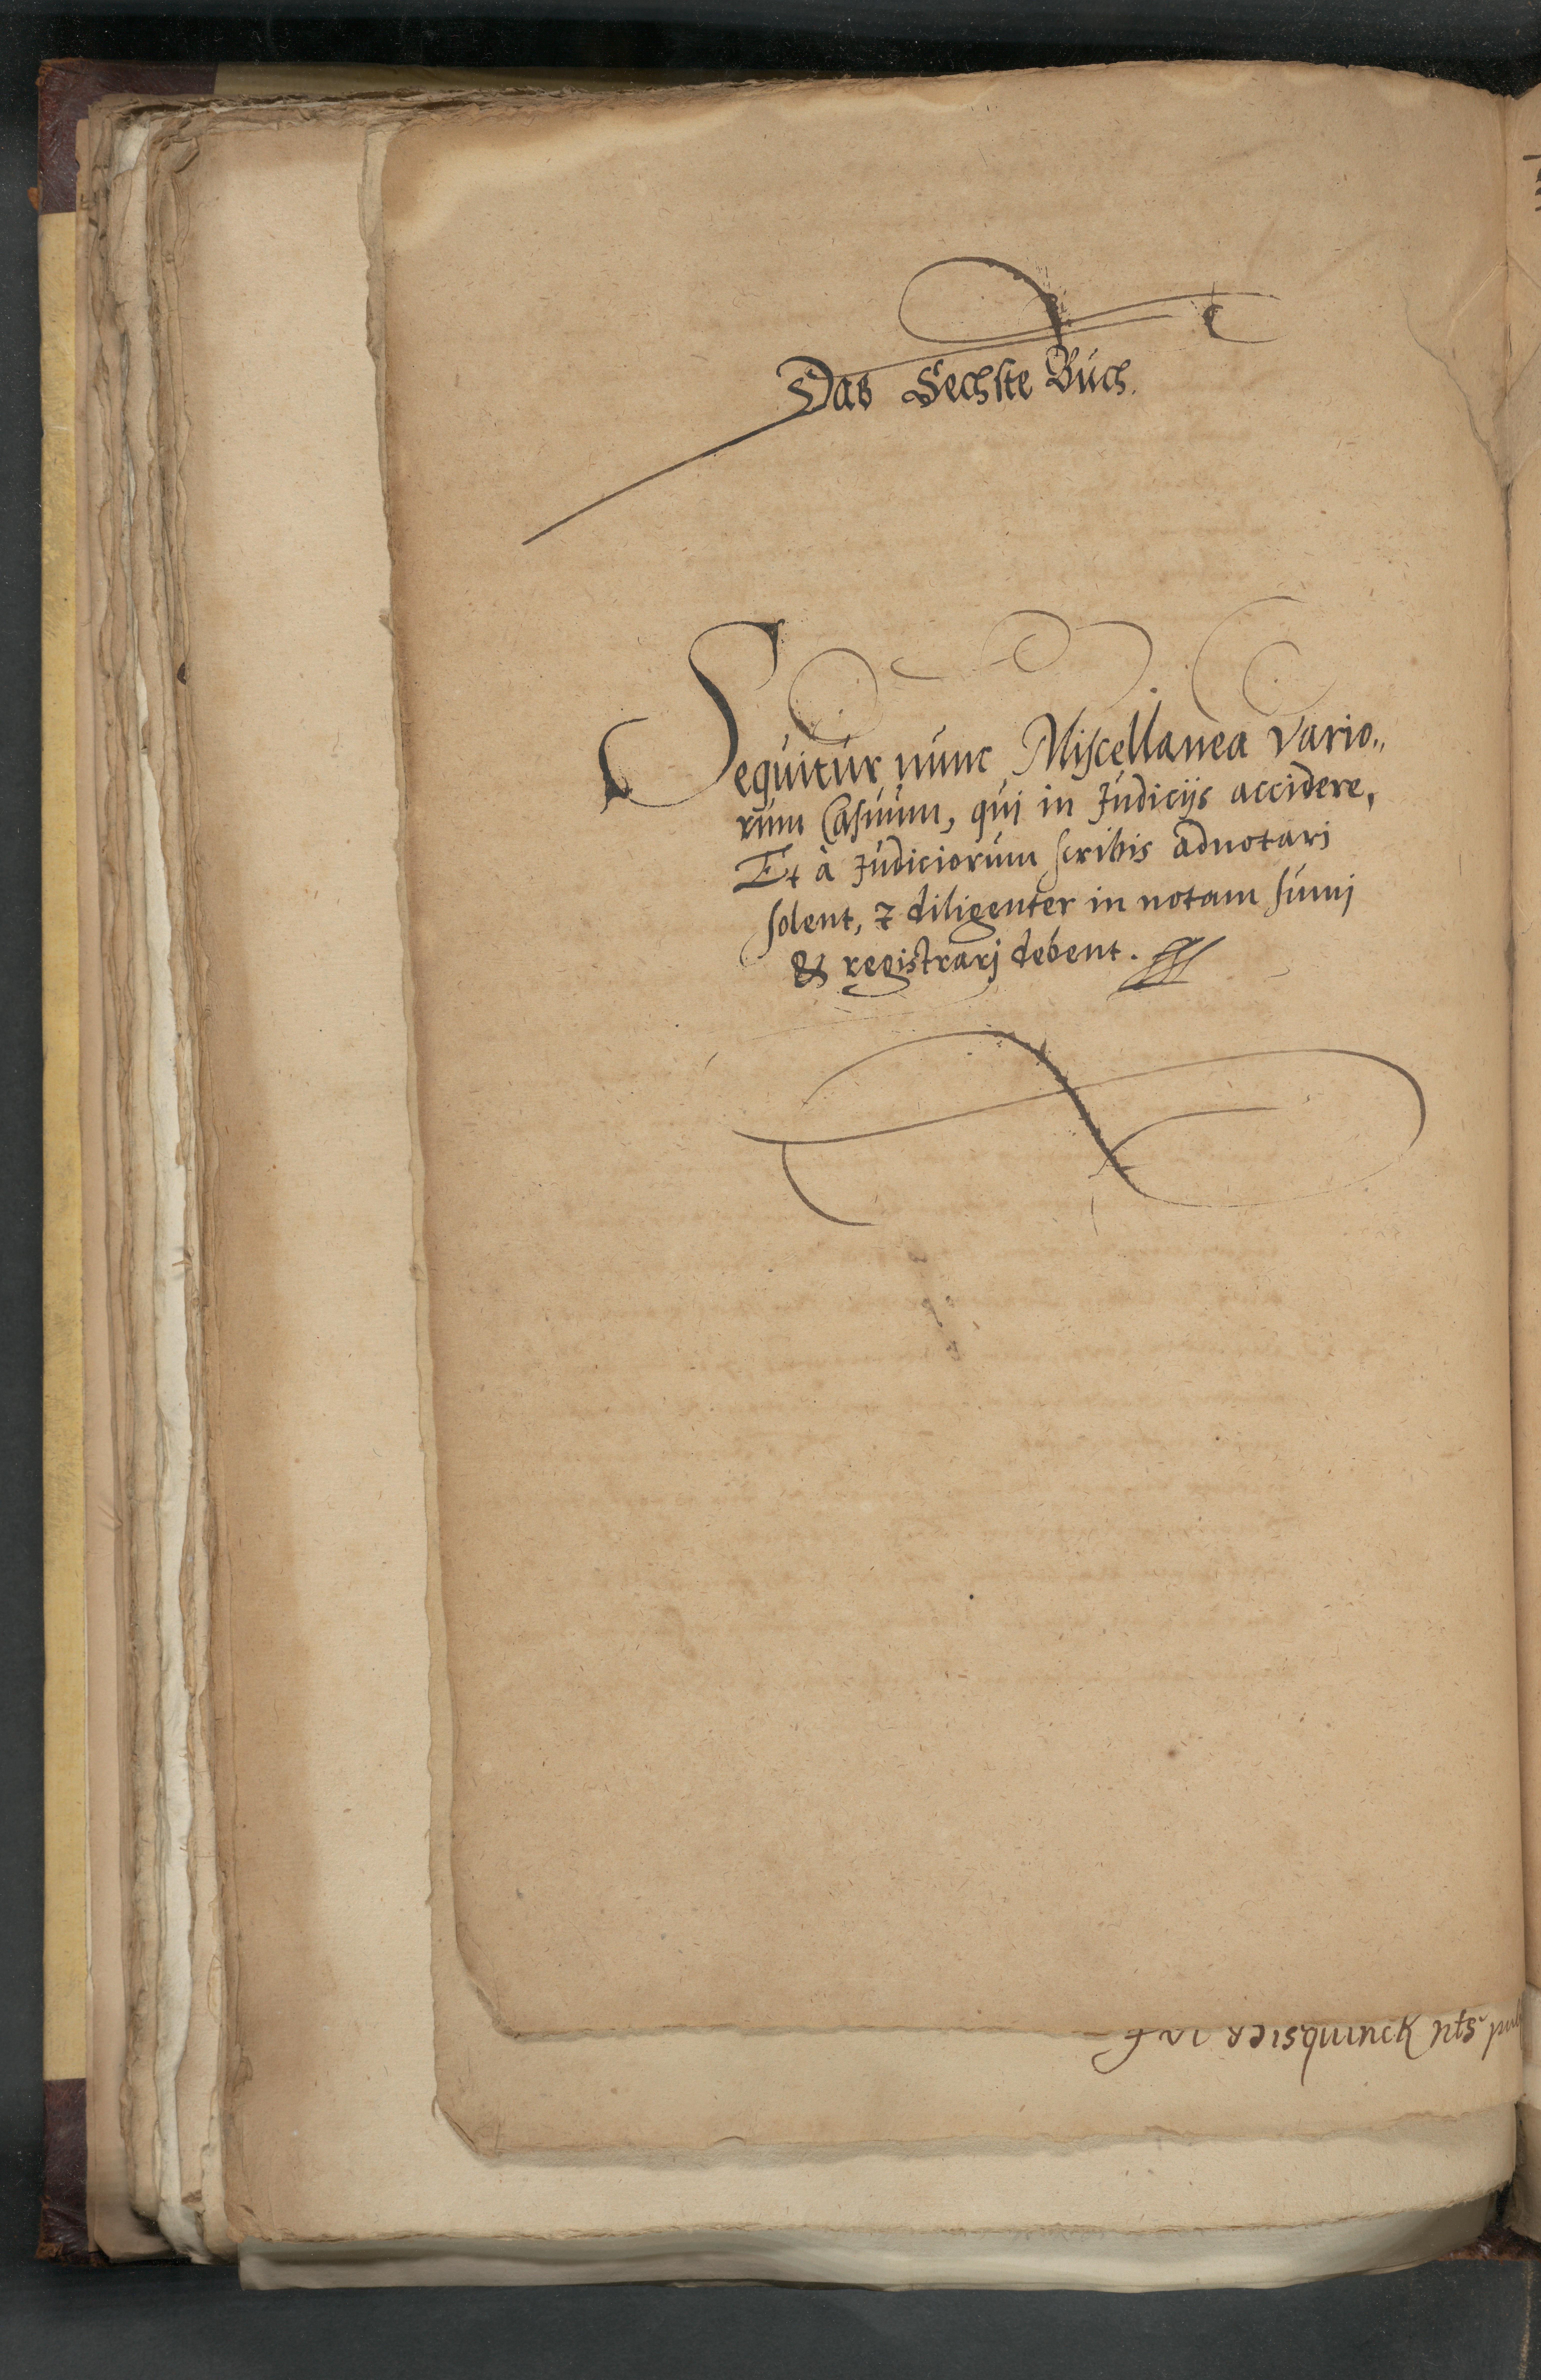 Das Sechste Buch.
Sequitur nunc Miscellanea Vario„
rum Casuum, qui in Judicijs accidere,
Et à Judiciorum scribis adnotari
solent, & diligenter in notam sumj
& registrarj debent.
nts pub